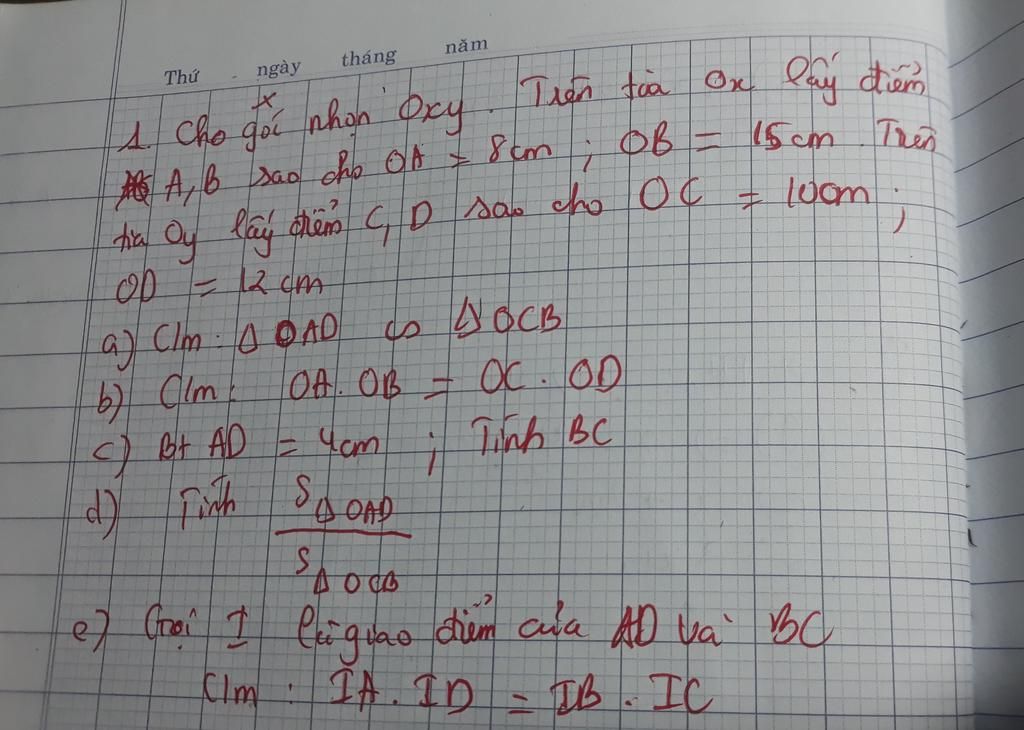 Thứ ngày tháng năm
1 Cho góc nhọn xOy. Trên tia Ox lấy điểm
A, B sao cho OA = 8cm ; OB = 15cm Trên
tia Oy lấy điểm C, D sao cho OC = 10cm ;
OD = 12 cm
a) C/m : Δ OAD ∽ Δ OCB
b) C/m : OA . OB = OC . OD
c) Bt AD = 4cm ; Tính BC
d) Tính S Δ OAD
S Δ OCB
e) Gọi I là giao điểm của AD và BC
C/m : IA . ID = IB . IC